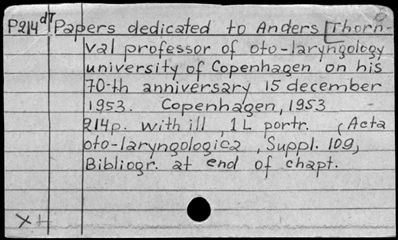 P214dT Papers dedicated to Anders [Thorn-
val professor of oto-laryngology
university of Copenhagen on his
70-th anniversary 15 december
1953. Copenhagen, 1953
214p. with ill, 1 L portr. (Acta
oto-laryngologica, Suppl. 109)
Bibliogr. at end of chapt.